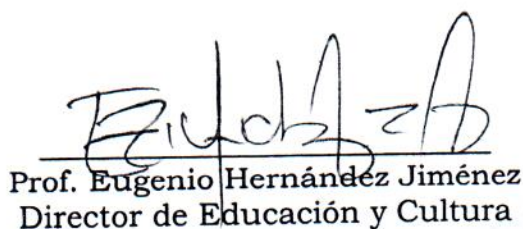 Prof. Eugenio Hernández Jiménez
Director de Educación y Cultura